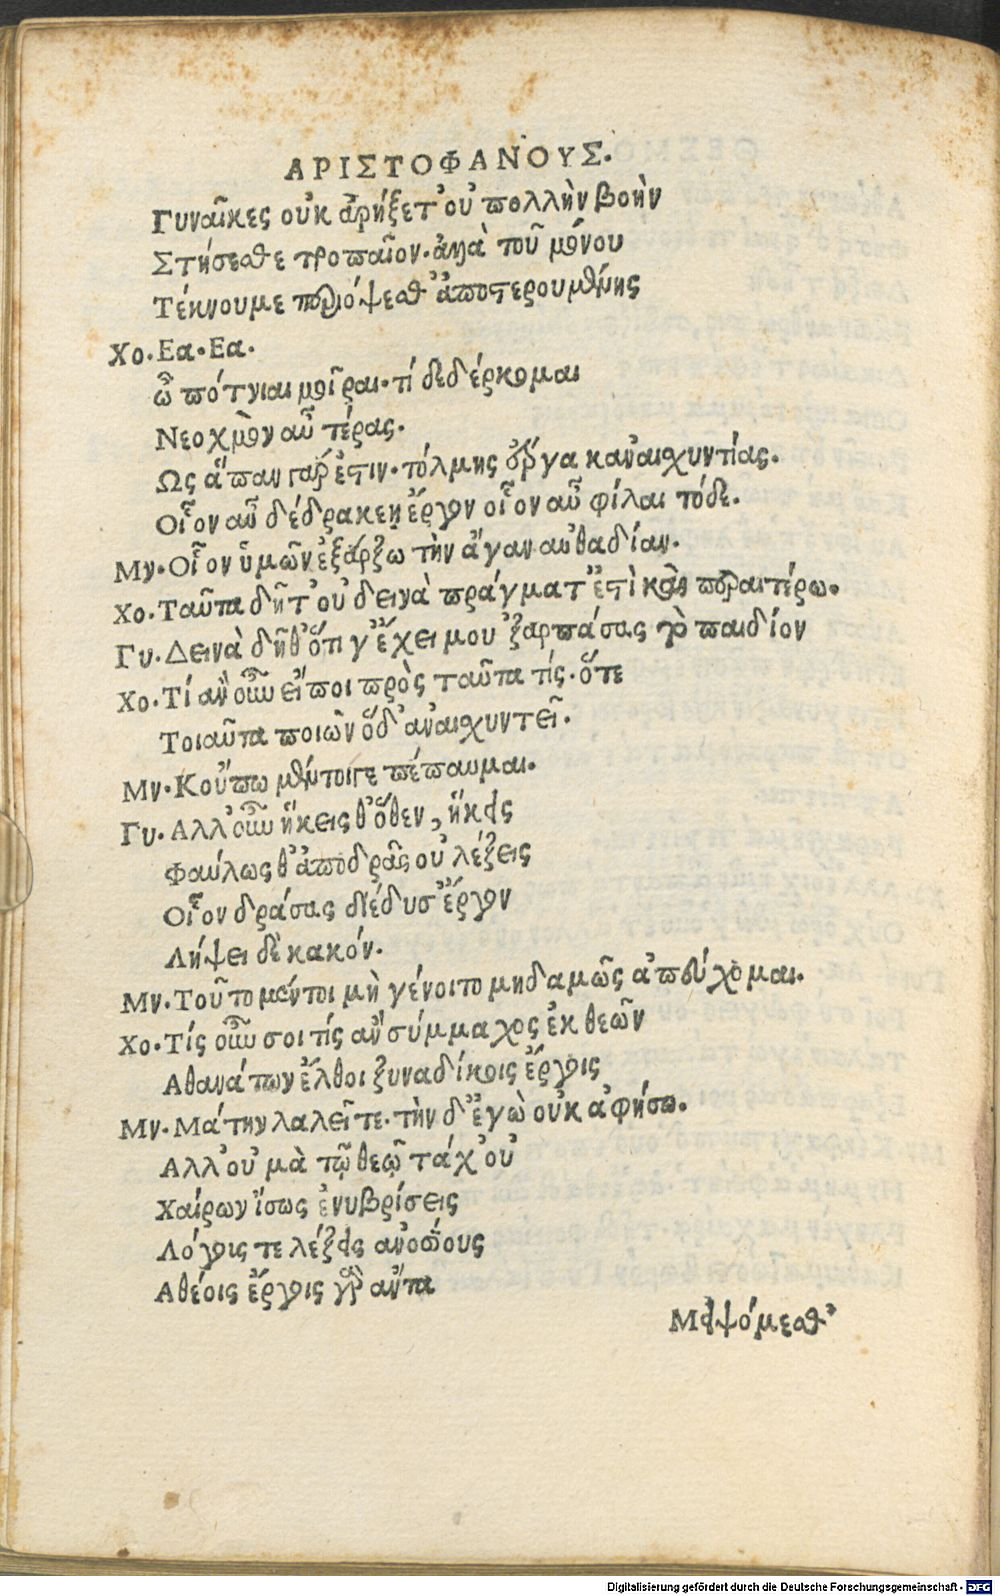 ΑΡΙΣΤΟΦΑΝΟΥΣ.
Γυναῖκες οὐκ ἀρήξετ' οὐ πολλὴν βοὴν
Στήσεσθε τροπαῖον. ἀλλὰ τοῦ μόνου
Τέκνου με περιόψεσθ' ἀποστερουμένης
Χο. Εα. Εα.
ὦ πότνιαι μοῖραι. τί δὲ δέρκομαι
Νεοχμὸν αὖ τέρας.
Ως ἅπαν γάρ ἐστιν. τόλμης ἔργα κἀναισχυντίας.
Οἷον αὖ δέδρακεν ἔργον οἷον αὖ φίλαι τόδε.
Μν. Οἷον ὑμῶν ἐξάρξω τὴν ἄγαν αὐθαδίαν.
Χο. Ταῦτα δῆτ' οὐ δεινὰ πράγματ' ἐστὶ καὶ περαιτέρω.
Γυ. Δεινὰ δῆθ' ὅτι γ' ἔχει μου 'ξαρπάσας τὸ παιδίον
Χο. Τί ἂν οὖν εἴποι πρὸς ταῦτα τίς. ὅτε
Τοιαῦτα ποιῶν ὅδ' ἀναισχυντεῖ.
Μν. Κοὔπω μέντοιγε πέπαυμαι.
Γυ. Αλλ' οὖν ἥκεις θ' ὅθεν, ἥκεις
Φαύλως θ' ἀποδρὰς οὐ λέξεις
Οἷον δράσας διέδυς ἔργον
Λήψει δὲ κακόν.
Μν. Τοῦτο μέντοι μὴ γένοιτο μηδαμῶς ἀπεύχομαι.
Χο. Τίς οὖν σοι τίς ἂν σύμμαχος ἐκ θεῶν
Αθανάτων ἔλθοι ξυναδίκοις ἔργοις
Μν. Μάτην λαλεῖτε. τὴν δ' ἐγὼ οὐκ ἀφήσω.
Αλλ' οὐ μὰ τὼ θεὼ τάχ' οὐ
Χαίρων ἴσως ἐνυβρίσεις
Λόγοις τε λέξεις ἀνοσίους
Αθέοις ἔργοις γὰρ αὐτὰ
Μειψόμεσθ'
Digitalisierung gefördert durch die Deutsche Forschungsgemeinschaft - DFG